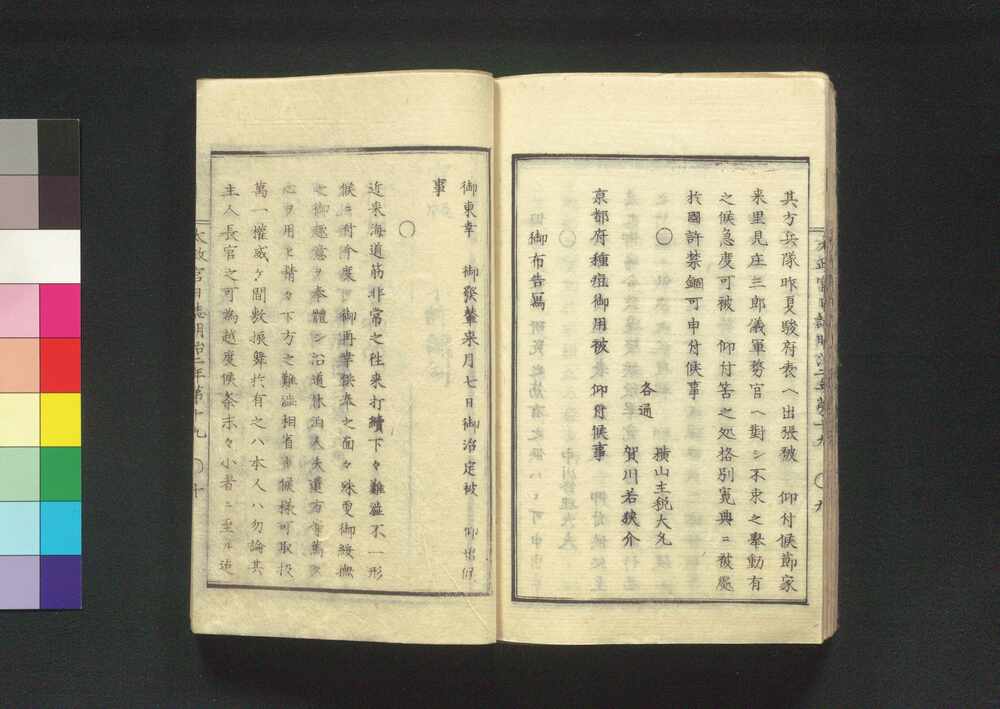 其方兵隊昨夏駿府表ヘ出張被　仰付候節家
来里見庄三郎儀軍務官ヘ對シ不束之擧動有
之候急度可被　仰付筈之処格別寛典ニ被處
於國許禁錮可申付候事
各通　横山主税大允
賀川若狹介
京都府種痘御用被　仰付候事
御布告寫
太政官日誌明治二年第十九　〇九
御東幸　御發輦来月七日御治定被　仰出候
事
〇
近来海道筋非常之往来打續下々難澁不一形
候ニ付今度　御再幸供奉之面々殊更御綏撫
之御趣意ヲ奉體シ沿道休泊人夫遣方等篤ク
心ヲ用ヒ精々下方之難澁相省キ候様可取扱
萬一權威ケ間敷振舞於有之ハ本人ハ勿論其
主人長官之可為越度候条末々小者ニ至ル迠
太政官日誌明治二年第十九　〇十